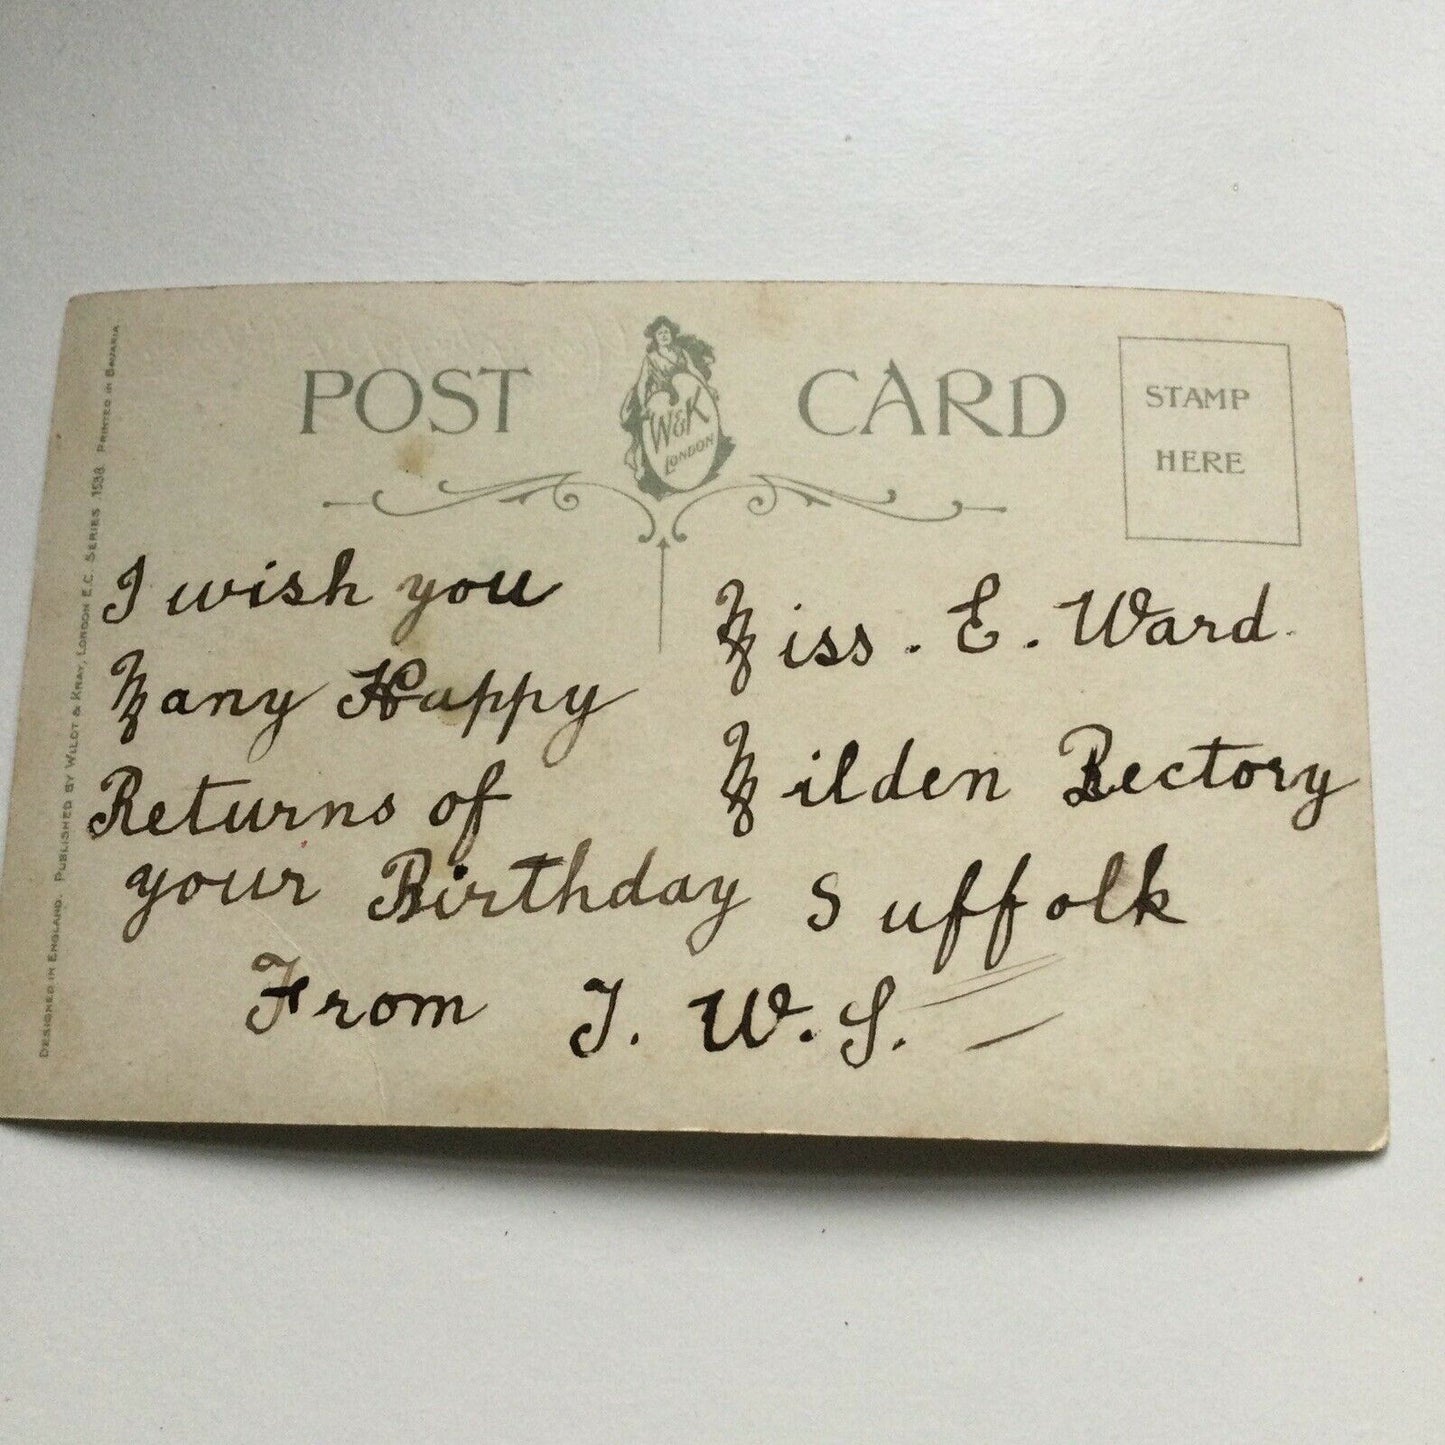 POST CARD
W&K
LONDON
STAMP
HERE
I wish you
Many Happy
Returns of
your Birthday
From J. W. S.
Miss. E. Ward.
Milden Rectory
Suffolk
DESIGNED IN ENGLAND. PUBLISHED BY WILDT & KRAY, LONDON E.C. SERIES 1538. PRINTED IN BAVARIA